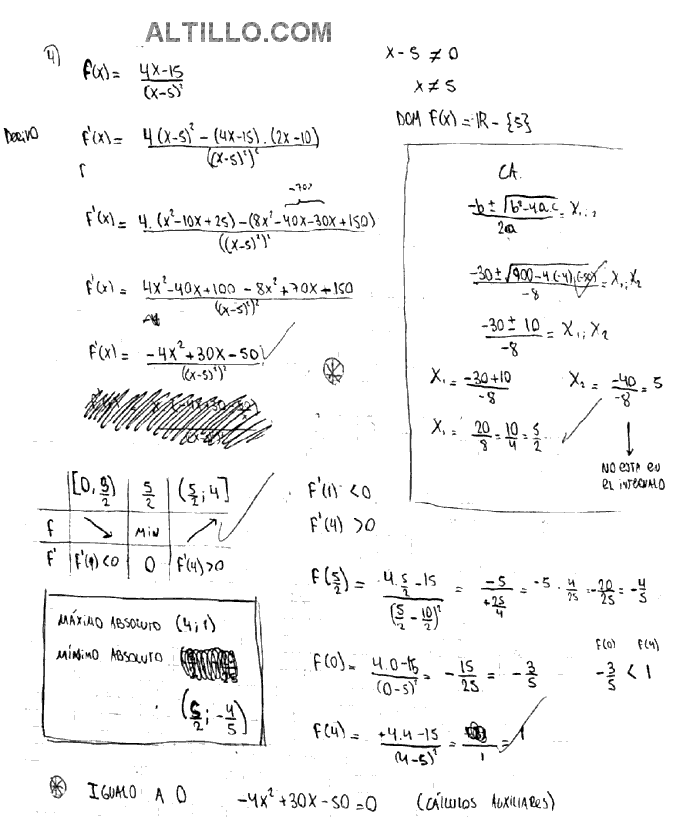 ALTILLO.COM
4) f(x) = (4x-15)/(x-5)²
x-5 ≠ 0
x ≠ 5
DOM f(x) = IR - {5}
DERIVO f'(x) = (4(x-5)² - (4x-15).(2x-10))/((x-5)²)²
-70x
f'(x) = (4.(x²-10x+25) - (8x²-40x-30x+150))/((x-5)²)²
f'(x) = (4x²-40x+100 - 8x²+70x-150)/((x-5)²)²
f'(x) = (-4x²+30x-50)/((x-5)²)²
CA.
(-b ± √(b²-4a.c))/2a = X₁;₂
(-30 ± √(900-4.(-4).(-50)))/-8 = X₁;X₂
(-30 ± 10)/-8 = X₁;X₂
X₁ = (-30+10)/-8
X₂ = -40/-8 = 5
X₁ = 20/8 = 10/4 = 5/2
NO ESTA EN
EL INTERVALO
[0, 5/2) 5/2 (5/2; 4]
f ↘ MIN ↗
f' f'(1)<0 0 f'(4)>0
f'(1) < 0
f'(4) > 0
f(5/2) = (4.5/2 - 15)/(5/2 - 10/2)² = -5/(+25/4) = -5 . 4/25 = -20/25 = -4/5
MÁXIMO ABSOLUTO (4;1)
MÍNIMO ABSOLUTO
(5/2; -4/5)
f(0) = (4.0-15)/(0-5)² = -15/25 = -3/5
f(0) f(4)
-3/5 < 1
f(4) = (+4.4-15)/(4-5)² = /1 = 1
IGUALO A 0 -4x²+30x-50=0 (CÁLCULOS AUXILIARES)